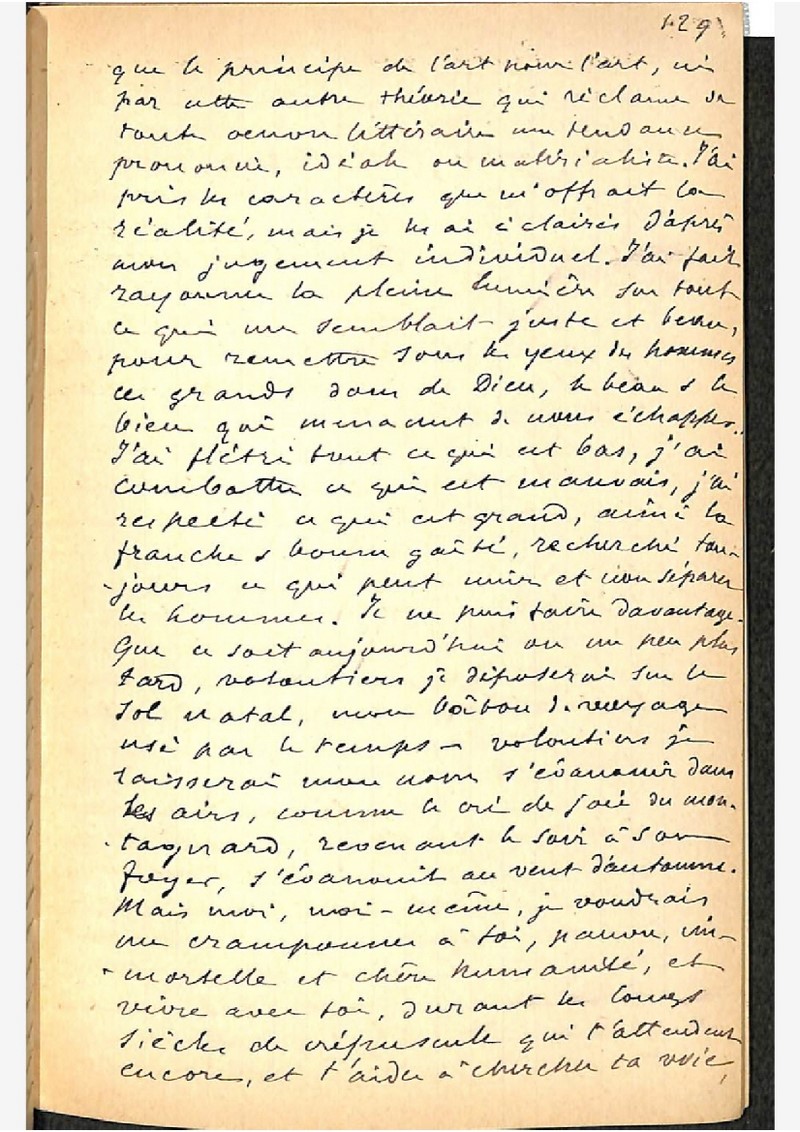 129
que le principe de l'art pour l'art, ni
par cette autre théorie qui réclame de
toute oeuvre littéraire une tendance
prononcée, idéale ou matérialiste. J'ai
pris les caractères que m'offrait la
réalité, mais je les ai éclairés d'après
mon jugement individuel. J'ai fait
rayonner la pleine lumière sur tout
ce qui me semblait juste et beau,
pour remettre sous les yeux des hommes
ces grands dons de Dieu, le beau & le
bien qui menacent de nous échapper.
J'ai flétri tout ce qui est bas, j'ai
combattu ce qui est mauvais, j'ai
respecté ce qui est grand, aimé la
franche & bonne gaîté, recherché tou-
-jours ce qui peut unir et non séparer
les hommes. Je ne puis faire davantage.
Que ce soit aujourd'hui ou un peu plus
tard, volontiers je déposerai sur le
sol natal, mon bâton de voyage
usé par le temps – volontiers je
laisserai mon nom s'évanouir dans
les airs, comme le cri de joie du mon-
-tagnard, revenant le soir à son
foyer, s'évanouit au vent d'automne.
Mais moi, moi-même, je voudrais
me cramponner à toi, pauvre, im-
-mortelle et chère humanité, et
vivre avec toi, durant les longs
siècles de crépuscule qui t'attendent
encore, et t'aider à chercher ta voie,